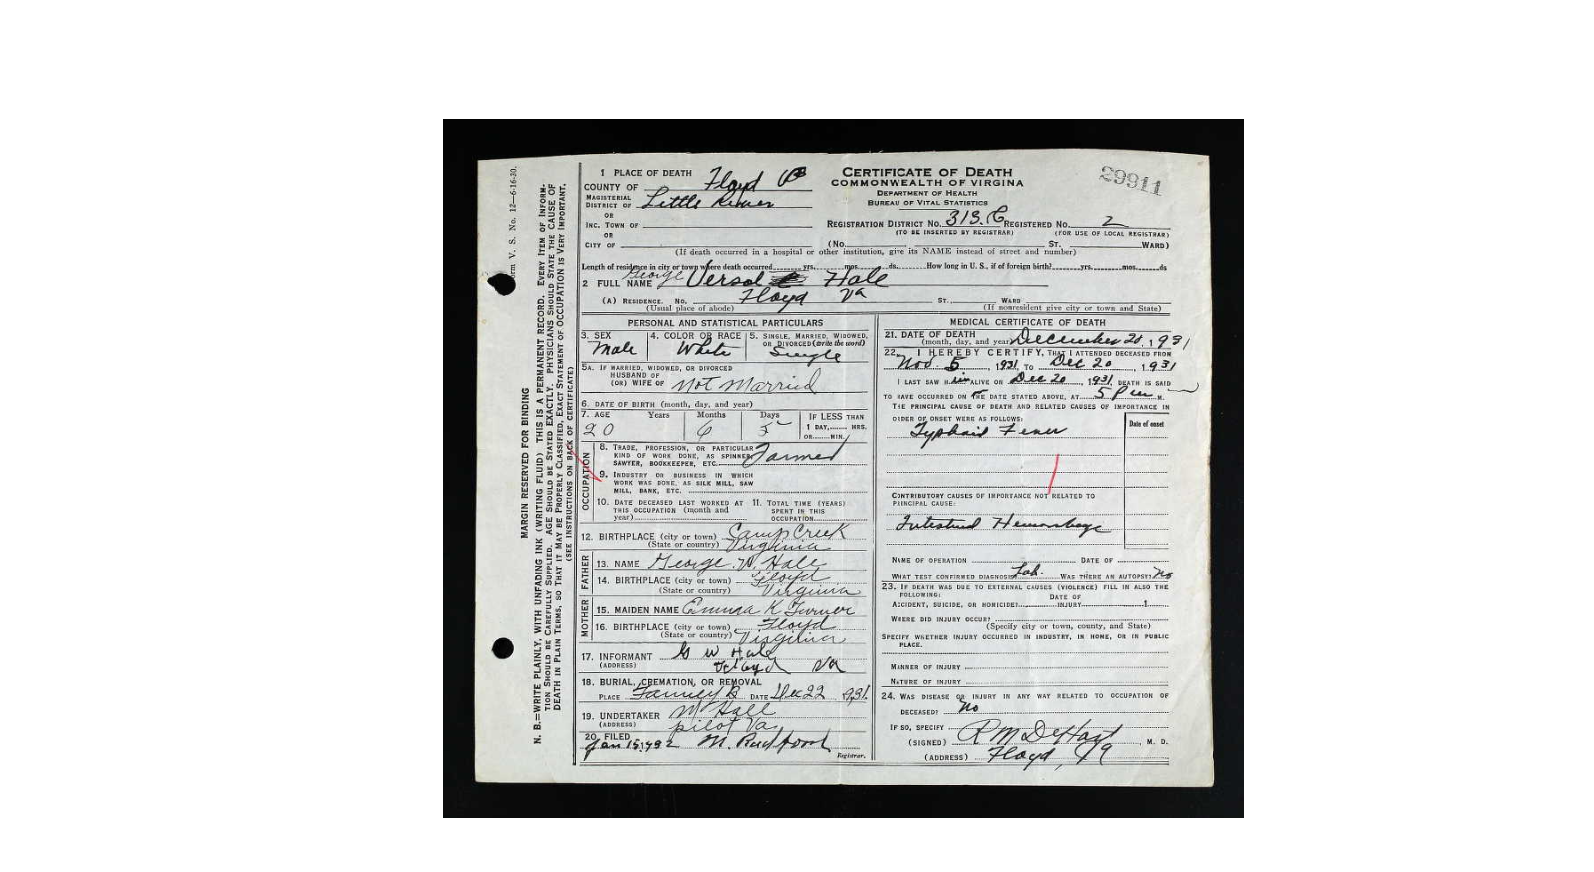 29911
CERTIFICATE OF DEATH
COMMONWEALTH OF VIRGINIA
DEPARTMENT OF HEALTH
BUREAU OF VITAL STATISTICS
1 PLACE OF DEATH
COUNTY OF Floyd Va
MAGISTERIAL DISTRICT OF Little River
OR
INC. TOWN OF
OR
CITY OF
REGISTRATION DISTRICT NO. 313.C REGISTERED NO. 2
(TO BE INSERTED BY REGISTRAR) (FOR USE OF LOCAL REGISTRAR)
(No. ST. WARD)
(If death occurred in a hospital or other institution, give its NAME instead of street and number)
Length of residence in city or town where death occurred yrs. mos. ds. How long in U. S., if of foreign birth? yrs. mos. ds
2 FULL NAME George Versal Hale
(A) RESIDENCE. No. Floyd Va ST. WARD
(Usual place of abode) (If nonresident give city or town and State)
PERSONAL AND STATISTICAL PARTICULARS
3. SEX Male
4. COLOR OR RACE White
5. SINGLE, MARRIED, WIDOWED, OR DIVORCED (write the word) Single
5A. IF MARRIED, WIDOWED, OR DIVORCED
HUSBAND OF
(OR) WIFE OF Not Married
6. DATE OF BIRTH (month, day, and year)
7. AGE Years Months Days IF LESS THAN
20 6 5 1 DAY, HRS.
OR MIN.
OCCUPATION
8. TRADE, PROFESSION, OR PARTICULAR
KIND OF WORK DONE, AS SPINNER, Farmer
SAWYER, BOOKKEEPER, ETC.
9. INDUSTRY OR BUSINESS IN WHICH
WORK WAS DONE, AS SILK MILL, SAW
MILL, BANK, ETC.
10. DATE DECEASED LAST WORKED AT THIS OCCUPATION (month and year)
11. TOTAL TIME (YEARS) SPENT IN THIS OCCUPATION
12. BIRTHPLACE (city or town) Camp Creek
(State or country) Virginia
FATHER
13. NAME George W. Hale
14. BIRTHPLACE (city or town) Floyd
(State or country) Virginia
MOTHER
15. MAIDEN NAME Emma K Turner
16. BIRTHPLACE (city or town) Floyd
(State or country) Virginia
17. INFORMANT G W Hale
(ADDRESS) Floyd Va
18. BURIAL, CREMATION, OR REMOVAL
PLACE DATE Dec 22 1931
19. UNDERTAKER
(ADDRESS) Pilot Va.
20. FILED
Jan 15, 1932 M. Radford
Registrar.
MEDICAL CERTIFICATE OF DEATH
21. DATE OF DEATH
(month, day, and year) December 20, 1931
22. I HEREBY CERTIFY, THAT I ATTENDED DECEASED FROM
Nov. 5, 1931 TO Dec 20, 1931
I LAST SAW HIM ALIVE ON Dec 20, 1931 DEATH IS SAID
TO HAVE OCCURRED ON THE DATE STATED ABOVE, AT 5 P M.
THE PRINCIPAL CAUSE OF DEATH AND RELATED CAUSES OF IMPORTANCE IN
ORDER OF ONSET WERE AS FOLLOWS: Date of onset
Typhoid Fever
CONTRIBUTORY CAUSES OF IMPORTANCE NOT RELATED TO
PRINCIPAL CAUSE:
Intestinal Hemorrhage
NAME OF OPERATION DATE OF
WHAT TEST CONFIRMED DIAGNOSIS? Lab. WAS THERE AN AUTOPSY? No
23. IF DEATH WAS DUE TO EXTERNAL CAUSES (VIOLENCE) FILL IN ALSO THE
FOLLOWING: DATE OF
ACCIDENT, SUICIDE, OR HOMICIDE? INJURY 1
WHERE DID INJURY OCCUR?
(Specify city or town, county, and State)
SPECIFY WHETHER INJURY OCCURRED IN INDUSTRY, IN HOME, OR IN PUBLIC
PLACE.
MANNER OF INJURY
NATURE OF INJURY
24. WAS DISEASE OR INJURY IN ANY WAY RELATED TO OCCUPATION OF
DECEASED? No
IF SO, SPECIFY
(SIGNED) R M DeHart, M. D.
(ADDRESS) Floyd, Va
Form V. S. No. 12—6-16-30.
MARGIN RESERVED FOR BINDING
N. B.—WRITE PLAINLY, WITH UNFADING INK (WRITING FLUID) THIS IS A PERMANENT RECORD. EVERY ITEM OF INFORM-
TION SHOULD BE CAREFULLY SUPPLIED. AGE SHOULD BE STATED EXACTLY. PHYSICIANS SHOULD STATE THE CAUSE OF
DEATH IN PLAIN TERMS, SO THAT IT MAY BE PROPERLY CLASSIFIED. EXACT STATEMENT OF OCCUPATION IS VERY IMPORTANT.
(SEE INSTRUCTIONS ON BACK OF CERTIFICATE)